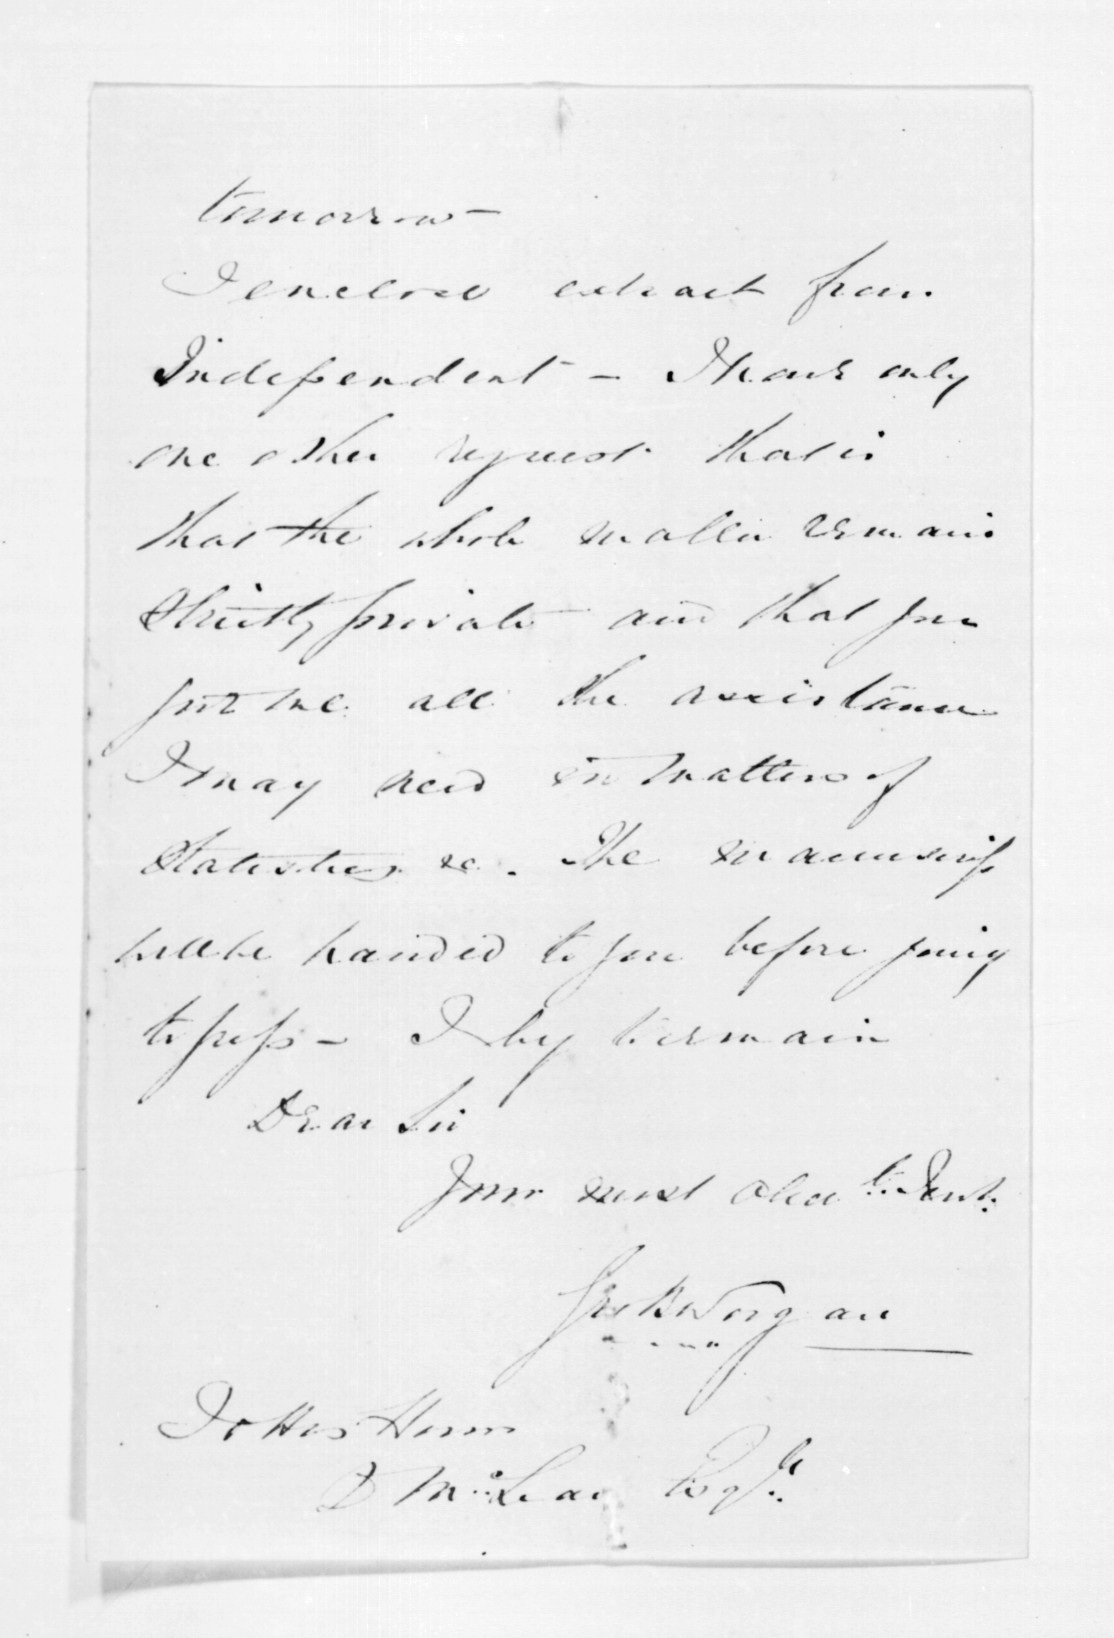 tomorrow -
I enclose extract from
Independent - I have only
one other request that is
that the whole matter remain
strictly private and that you
give me all the assistance
I may need in matters of
Statistics &c. The manuscript
will be handed to you before going
to press - I beg to remain
Dear Sir
Your most Obed t. Servt.
Geo B Worgan
To His Honor
D McLean Esqr.